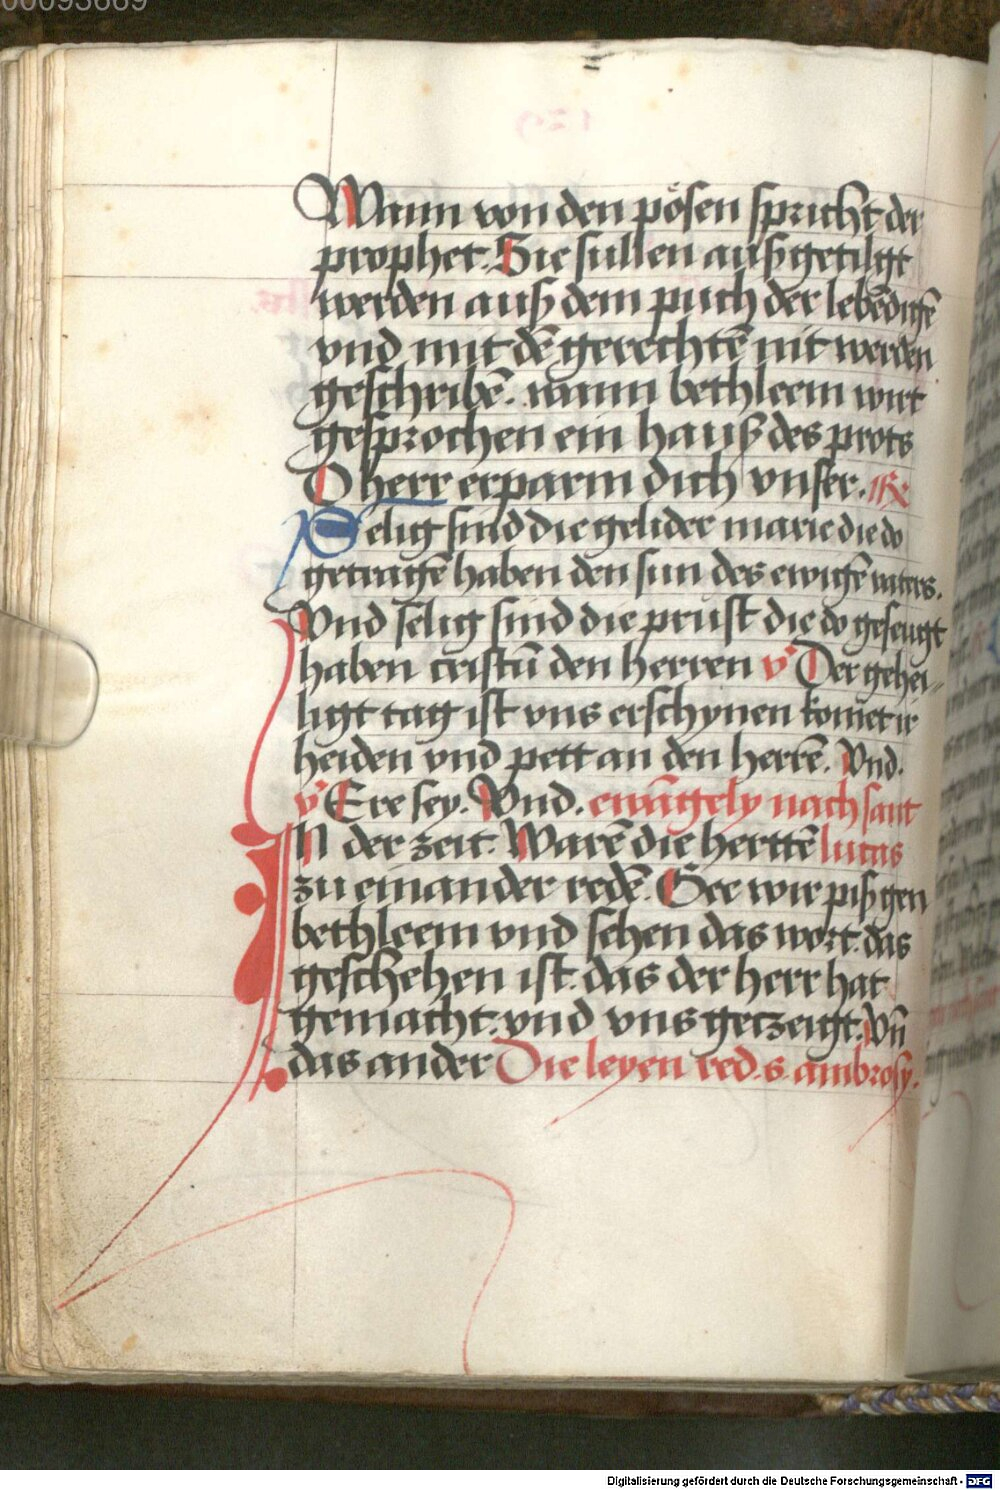 00093669
Wann von den pösen spricht der
prophet. Sie sullen auß getilgt
werden auß dem puch der lebēdigē
vnd mit dē gerechtē nit werden
geschribē. wann bethleem wirt
gesprochen ein hauß des prots
O herr erparm dich vnser. R
Selig sind die gelider marie die do
getragē haben den sun des ewigē vaters.
Vnd selig sind die prust die do geseugt
haben cristū den herren v Der gehei-
ligt tag ist vns erschynen komet ir
heiden vnd pett an den herrē. Vnd.
v Ere sey. Vnd. ewāgely nach sant
IN der zeit. Warē die herttē lucas
zu einander redē. Gee wir piß gen
bethleem vnd sehen das wort. das
geschehen ist. das der herr hat
gemacht. vnd vns getzeigt. Vñ
das ander Die leyen red. s. ambrosy.
Digitalisierung gefördert durch die Deutsche Forschungsgemeinschaft - DFG